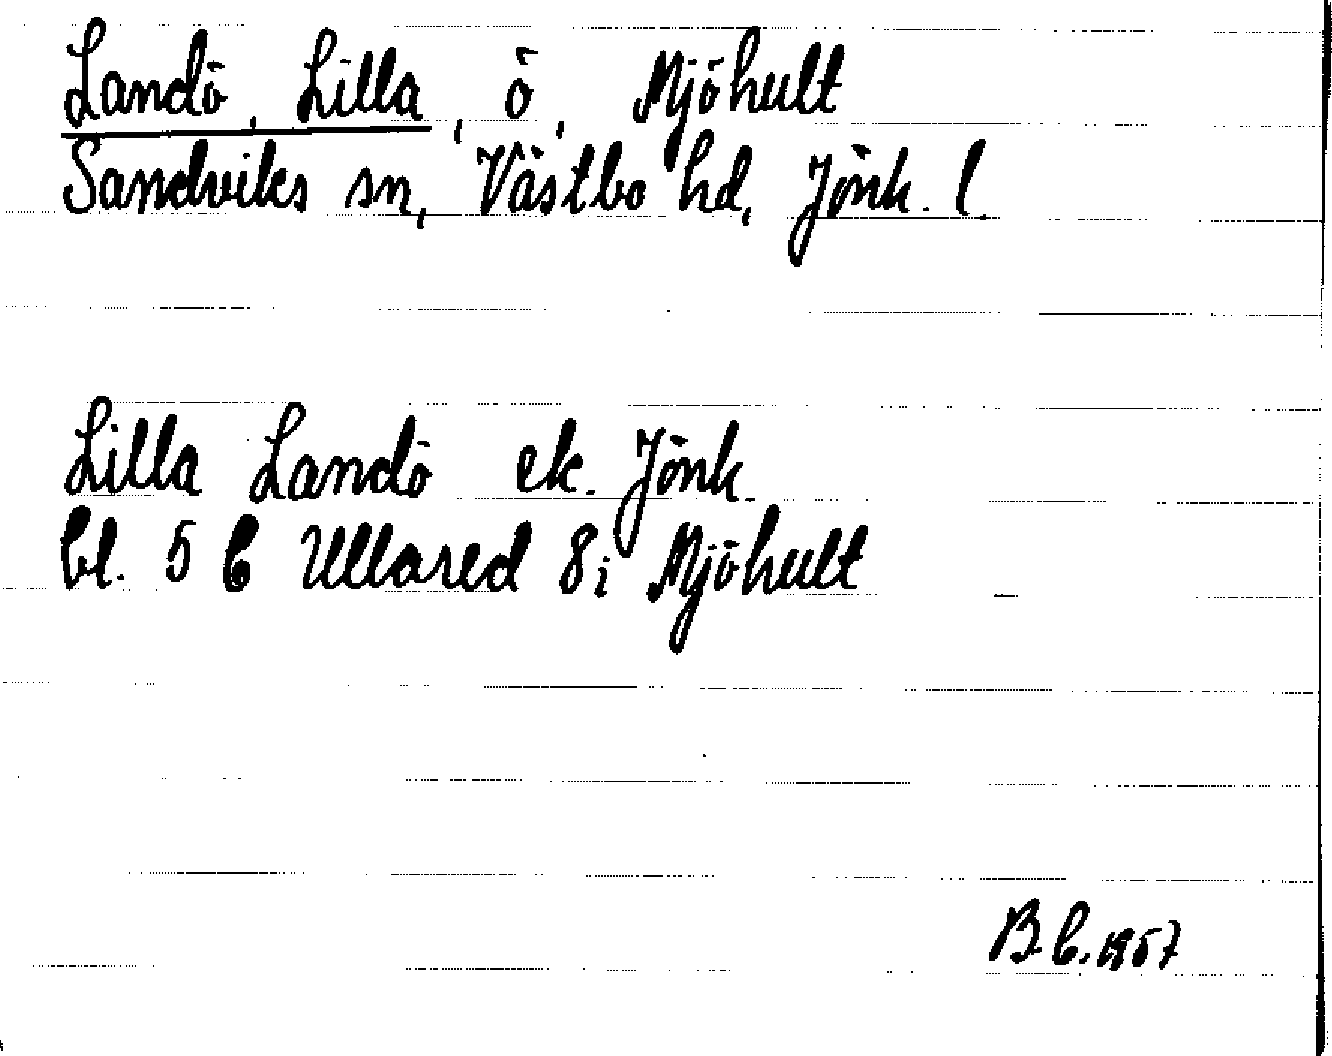 Landö, Lilla, ö, Mjöhult
Sandviks sn, Västbo hd, Jönk. l.
Lilla Landö ek. Jönk.
bl. 5 C Ullared 8i Mjöhult
B.C. 1957